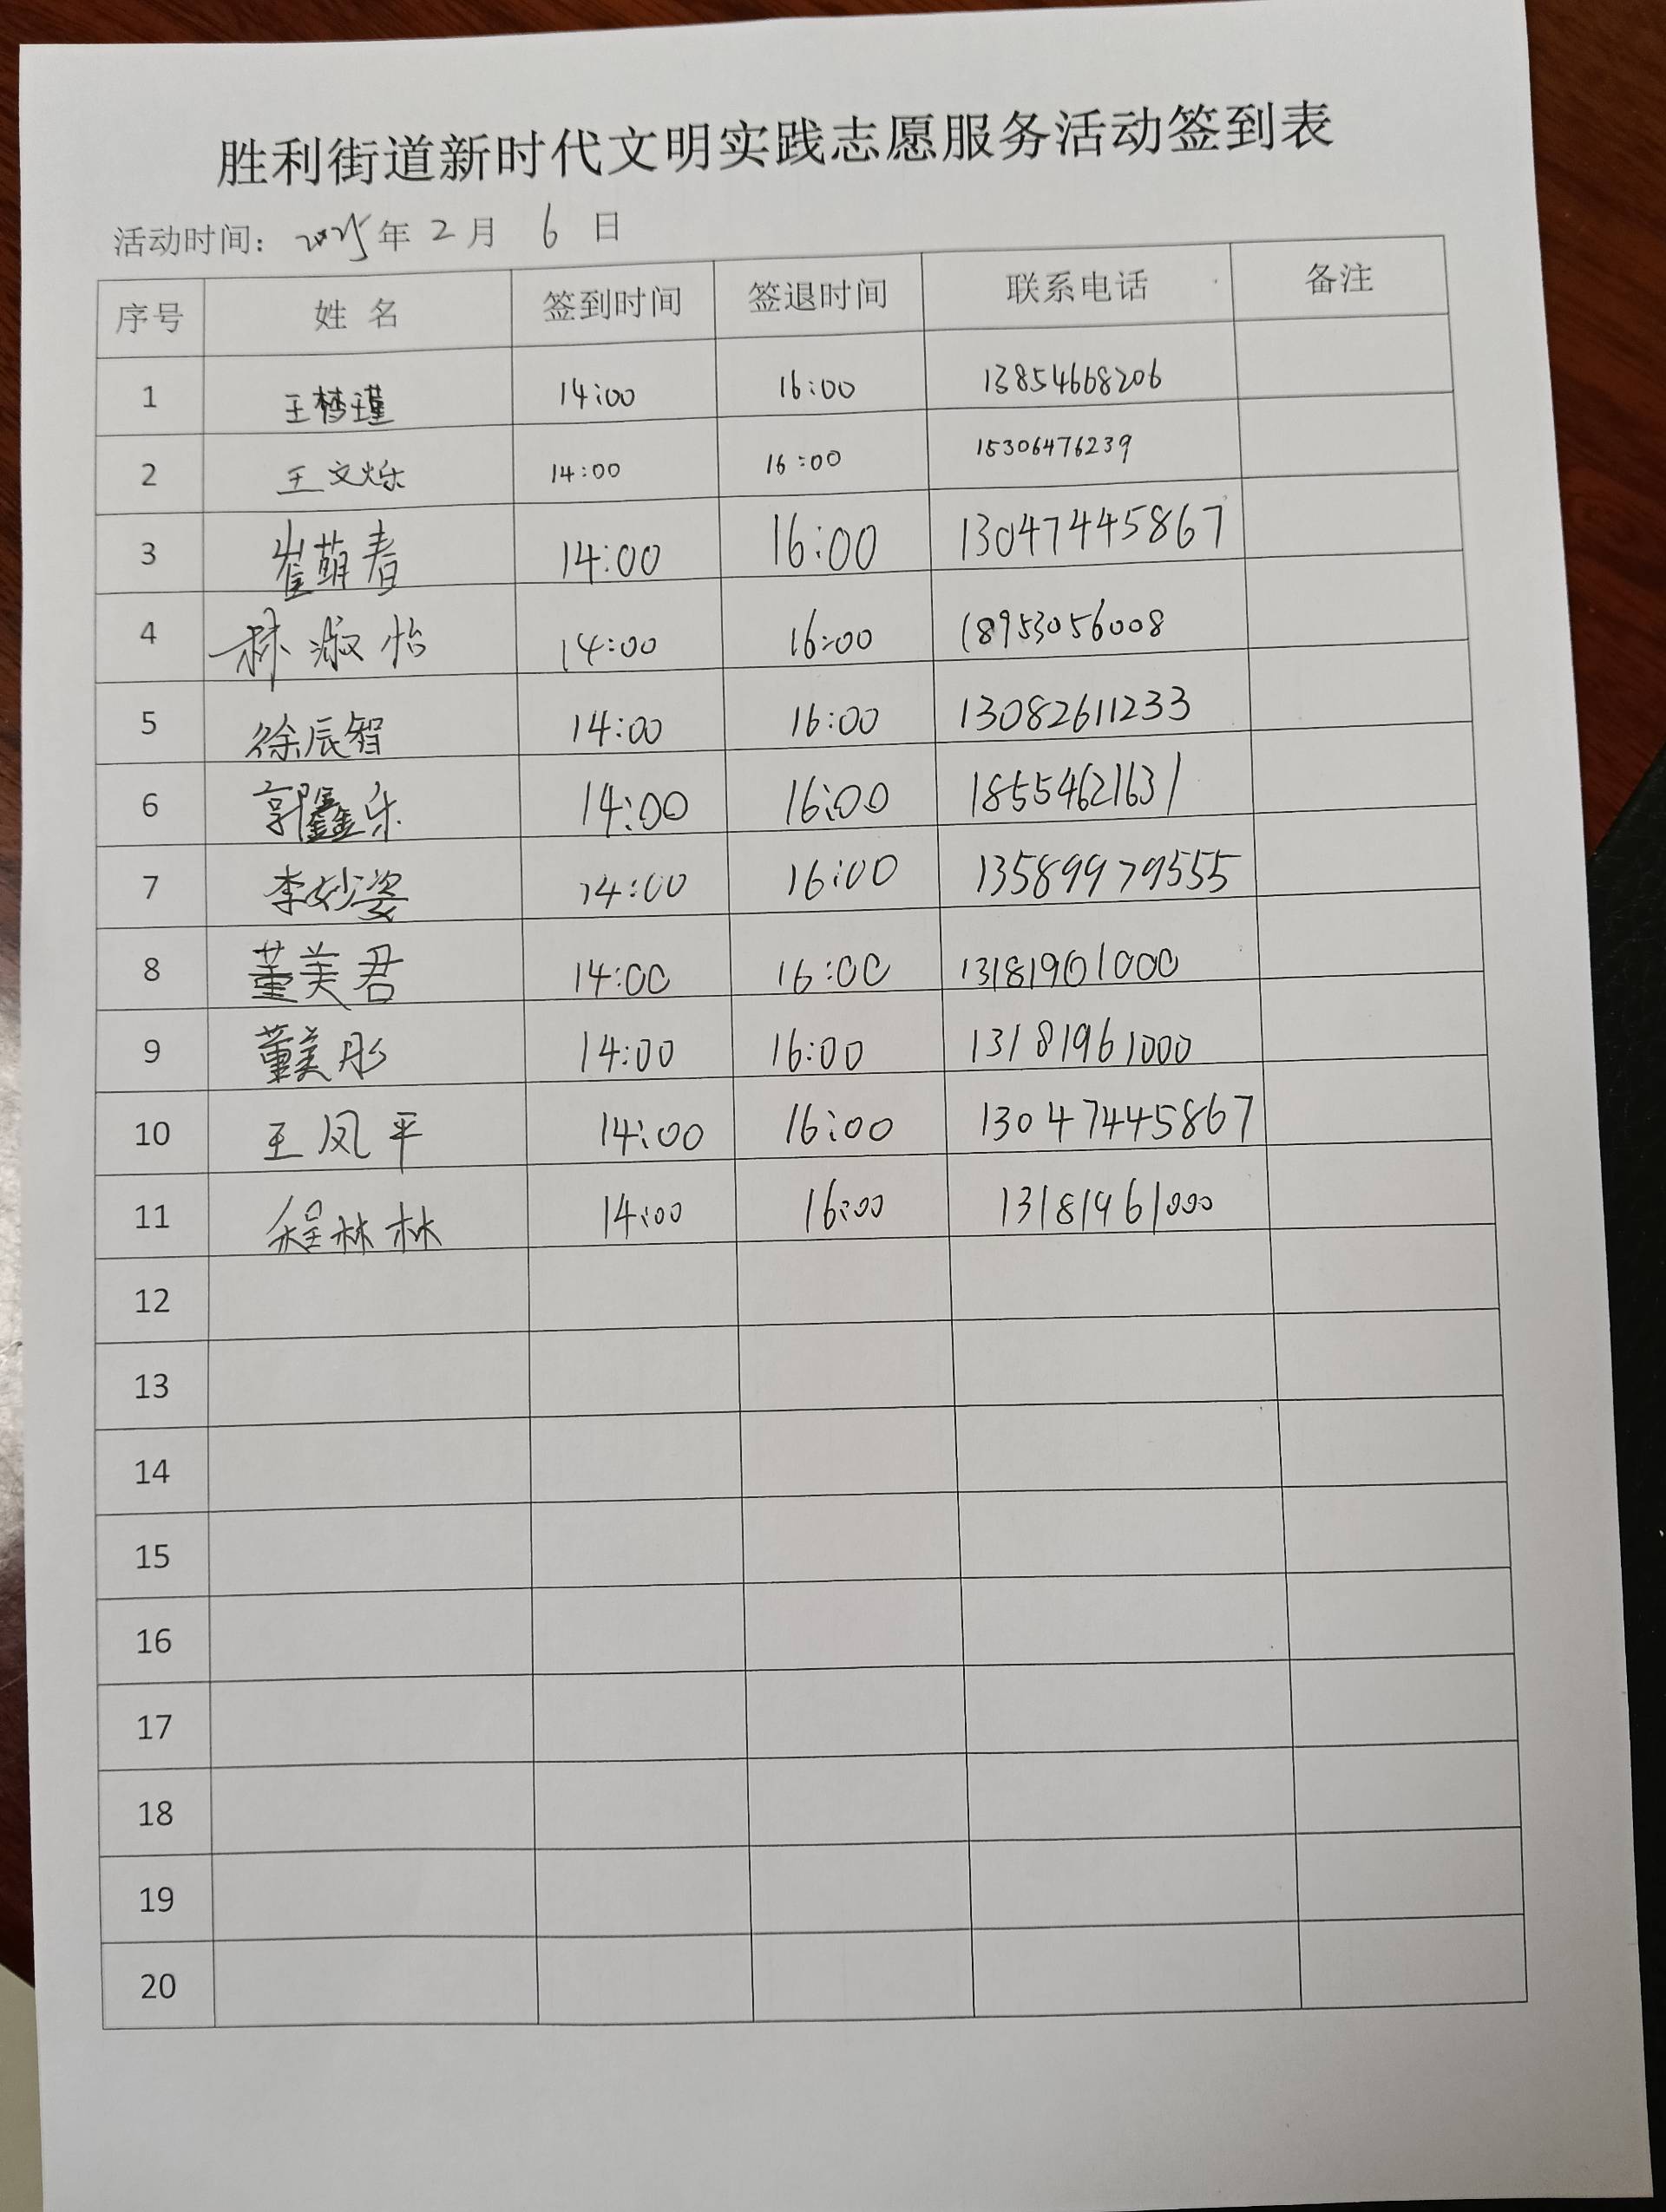 胜利街道新时代文明实践志愿服务活动签到表
活动时间: 2025年 2 月 6 日
序号 姓 名 签到时间 签退时间 联系电话 备注
1 王梦瑾 14:00 16:00 13854668206
2 王文烁 14:00 16:00 15306476239
3 崔萌春 14:00 16:00 13047445867
4 林淑怡 14:00 16:00 18953056008
5 徐辰智 14:00 16:00 13082611233
6 郭鑫乐 14:00 16:00 18554621631
7 李妙姿 14:00 16:00 13589979555
8 董美君 14:00 16:00 13181901000
9 董美彤 14:00 16:00 13181961000
10 王凤平 14:00 16:00 13047445867
11 程林林 14:00 16:00 13181961000
12
13
14
15
16
17
18
19
20